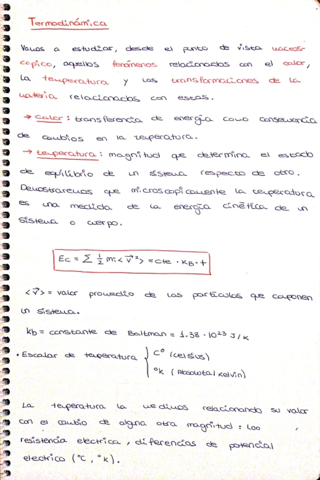 Termodinámica
Vamos a estudiar, desde el punto de vista macros-
cópico, aquellos fenómenos relacionados con el calor,
la temperatura y las transformaciones de la
materia relacionados con estas.
→ calor: transferencia de energía como consecuencia
de cambios en la temperatura.
→ temperatura: magnitud que determina el estado
de equilibrio de un sistema respecto de otro.
Demostraremos que microscopicamente la temperatura
es una medida de la energía cinética de un
sistema o cuerpo.
Ec = Σ ½ mi <v⃗²> = cte · KB · t
<v⃗> = valor promedio de las partículas que componen
un sistema.
kb = constante de Boltman = 1.38 · 10²³ J/K
• Escalar de temperatura { C° (celsius)
°k (Absoluta Kelvin)
La temperatura la medimos relacionando su valor
con el cambio de alguna otra magnitud: Loo,
resistencia electrica, diferencias de potencial
electrico (°C, °k).